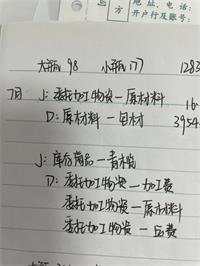 地址、电话:
方 开户行及账号:
大瓶 98 小瓶 177 1283
7月 J:委托加工物资—原材料 16.
D:原材料—包材 3954
J:库存商品—青梅
D:委托加工物资—加工费
委托加工物资—原材料
委托加工物资—运费